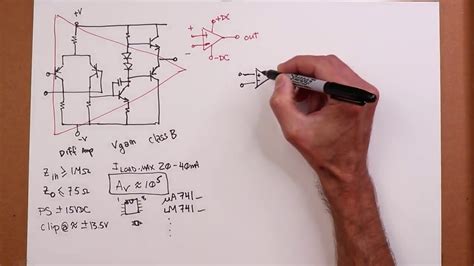 +V
+DC
out
-DC
-V
Diff Amp Vgain class B
Zin ≥ 1MΩ
Zo ≤ 75Ω
PS ± 15VDC
clip @ ≈ ± 13.5V
ILOAD-MAX 20-40mA
Av ≈ 10⁵
1 8
μA741_
LM741_